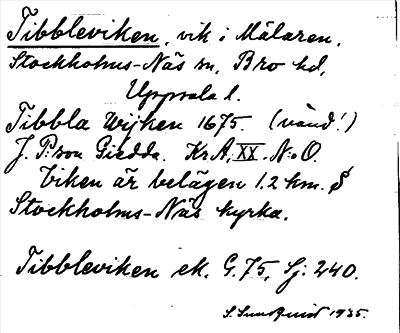 Tibbleviken, vik i Mälaren,
Stockholms-Näs sn, Bro hd,
Uppsala l.
Tibbla Wijken 1675. (vänd!)
J. P:son Giedda. Kr.A. XX. N:o O.
Viken är belägen 1.2 km. S
Stockholms-Näs kyrka.
Tibbleviken ek. G. 75, Sj. 240.
S. Sundquist 1935.